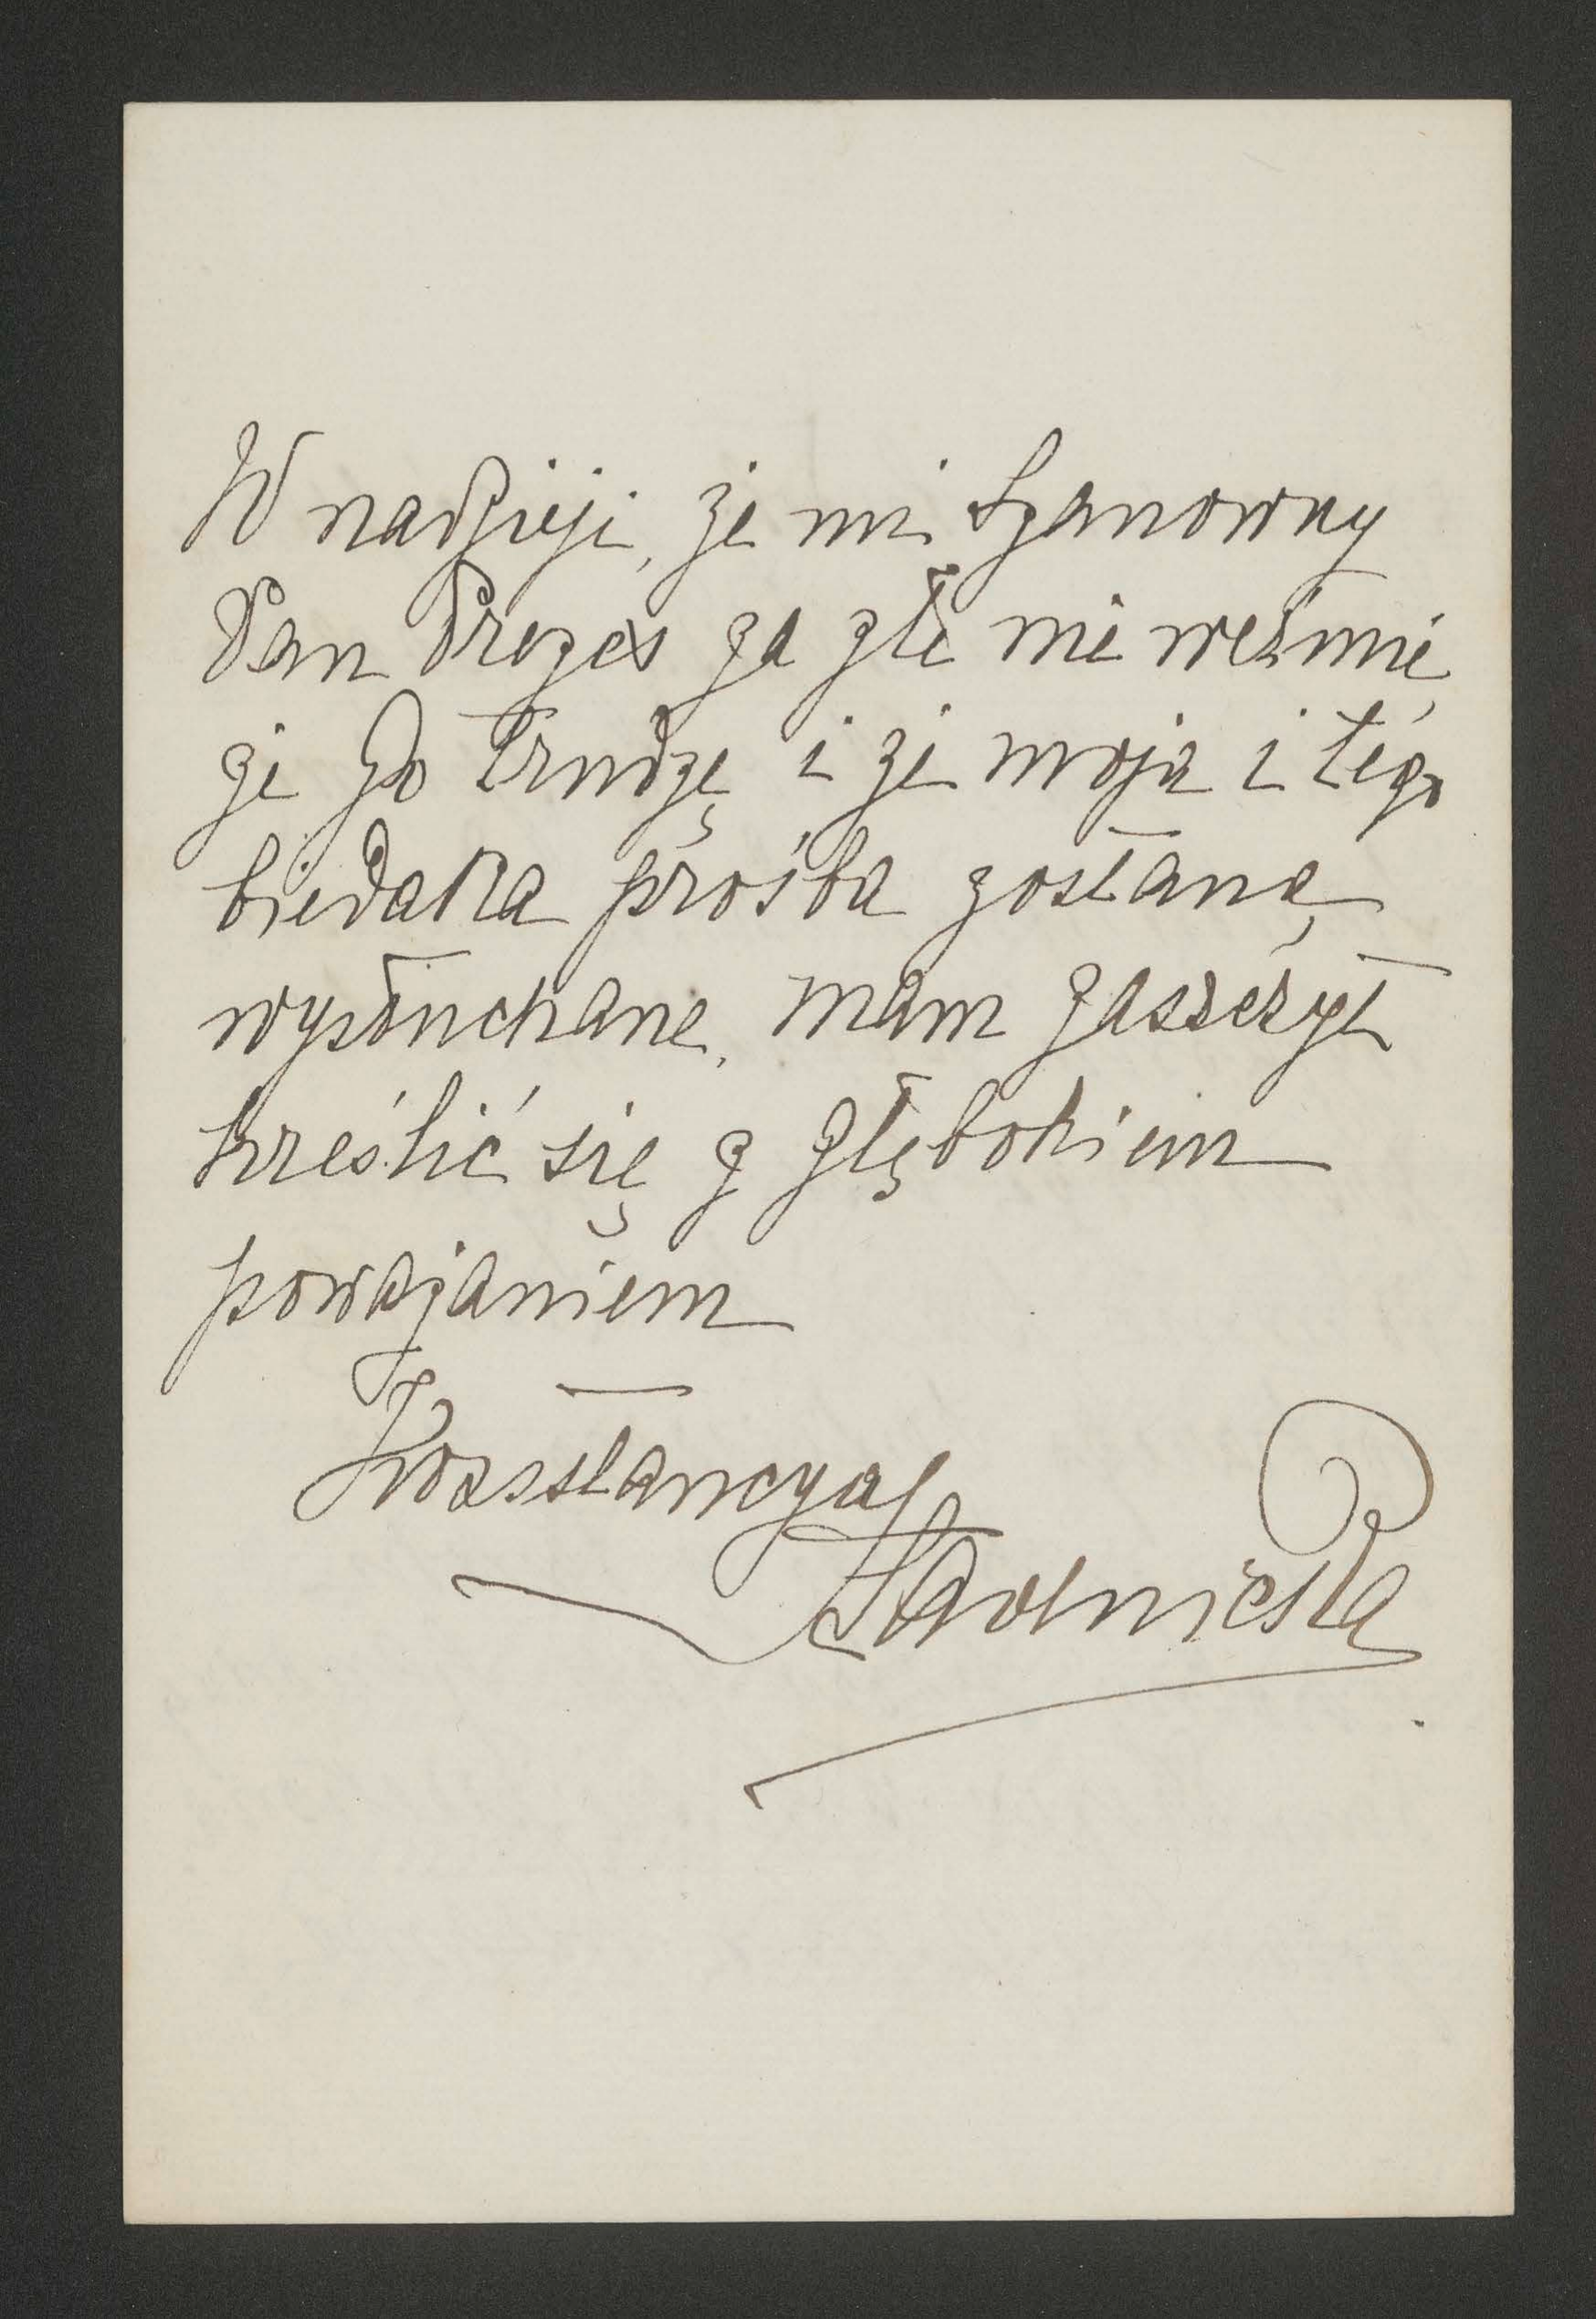 W nadzieji, że mi Szanowny
Pan Prezes za złe nie weźmie,
że Go trudzę i że moja i tego
biedaka prośba zostaną
wysłuchane, mam zaszczyt
kreślić się z głębokiem
poważaniem